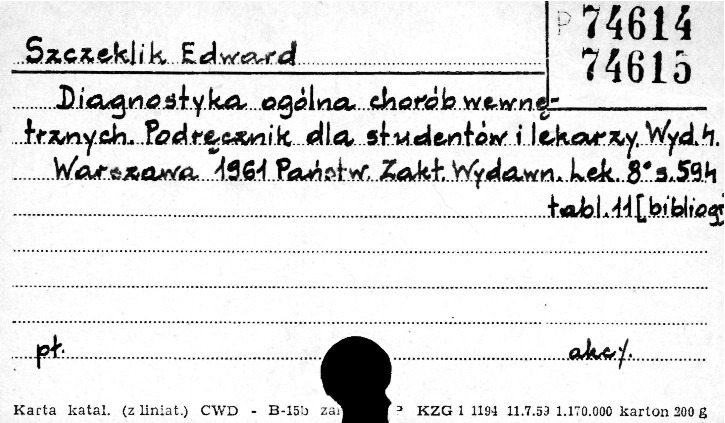 P 74614
74615
Szczeklik Edward
Diagnostyka ogólna chorób wewnę-
trznych. Podręcznik dla studentów i lekarzy. Wyd. 4.
Warszawa 1961 Państw. Zakt. Wydawn. Lek. 8° s. 594
tabl. 11 [bibliogr
pł. akc.
Karta katal. (z liniat.) CWD - B-15b KZG 1 1194 11.7.59 1.170.000 karton 200 g